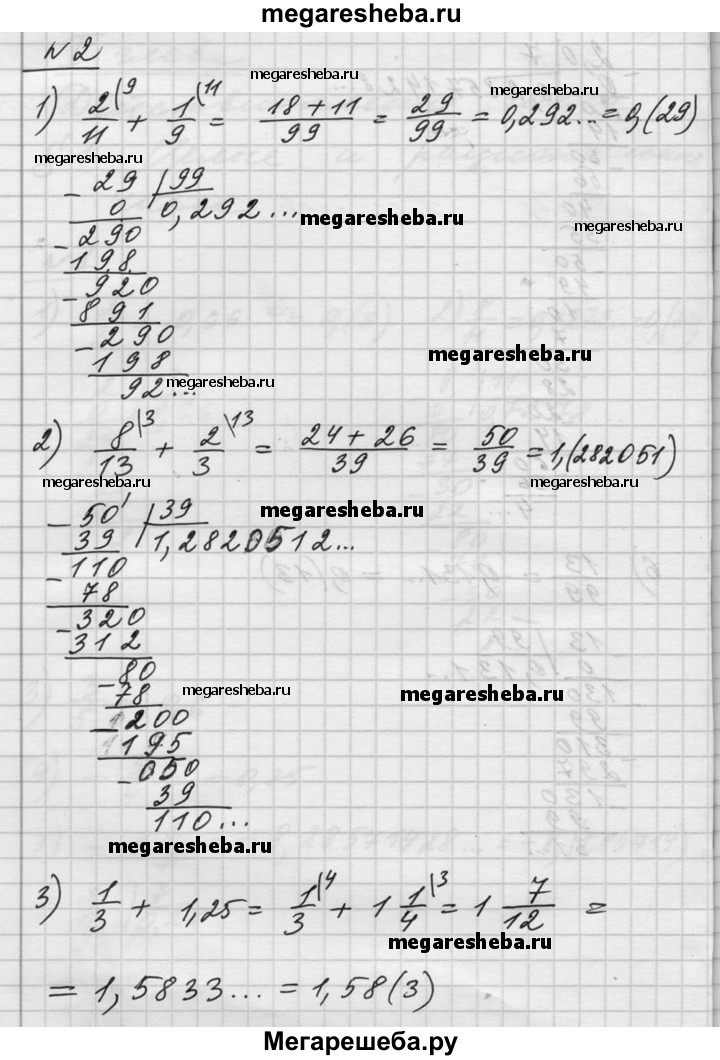 megaresheba.ru
№2
1) 2/11 (9 + 1/9 (11 = 18+11/99 = 29/99 = 0,292... = 0,(29)
megaresheba.ru
megaresheba.ru
megaresheba.ru
- 29 | 99
0 0,292...
- 290
megaresheba.ru
megaresheba.ru
198
- 920
891
- 290
megaresheba.ru
198
92...
megaresheba.ru
2) 8/13 (3 + 2/3 \13 = 24+26/39 = 50/39 = 1,(282051)
megaresheba.ru
megaresheba.ru
megaresheba.ru
- 50 | 39
megaresheba.ru
39 1,2820512...
- 110
78
- 320
312
- 80
78
megaresheba.ru
megaresheba.ru
- 200
195
- 050
39
110...
megaresheba.ru
3) 1/3 + 1,25 = 1/3 (4 + 1 1/4 (3 = 1 7/12 =
megaresheba.ru
= 1,5833... = 1,58(3)
Мегарешеба.ру